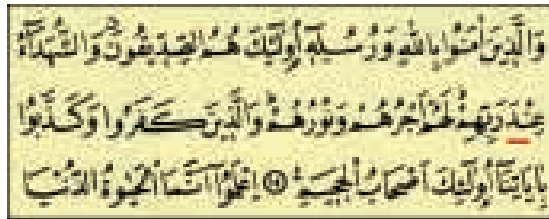 وَالَّذِينَ اٰمَنُوا بِاللّٰهِ وَرُسُلِهٖٓ اُولٰٓئِكَ هُمُ الصِّدّٖيقُونَ وَالشُّهَدَٓاءُ
عِنْدَ رَبِّهِمْ لَهُمْ اَجْرُهُمْ وَنُورُهُمْ وَالَّذٖينَ كَفَرُوا وَكَذَّبُوا
بِاٰيَاتِنَٓا اُولٰٓئِكَ اَصْحَابُ الْجَحٖيمِ ۝ اِعْلَمُٓوا اَنَّمَا الْحَيٰوةُ الدُّنْيَا